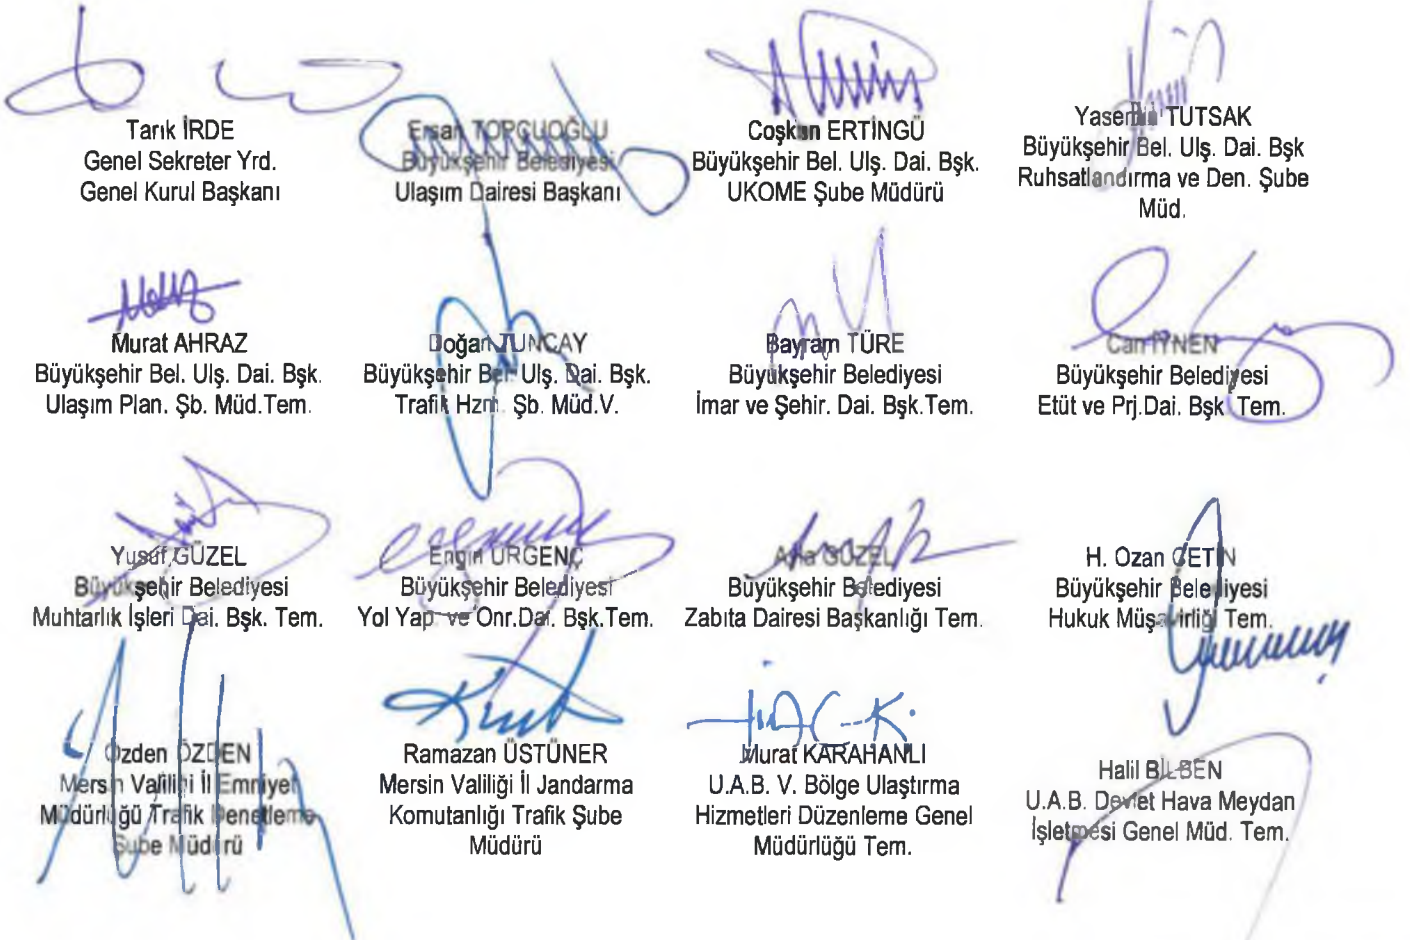 Tarık İRDE
Genel Sekreter Yrd.
Genel Kurul Başkanı
Ersan TOPCUOĞLU
Büyükşehir Belediyesi
Ulaşım Dairesi Başkanı
Coşkun ERTİNGÜ
Büyükşehir Bel. Ulş. Dai. Bşk.
UKOME Şube Müdürü
Yasemin TUTSAK
Büyükşehir Bel. Ulş. Dai. Bşk
Ruhsatlandırma ve Den. Şube
Müd.
Murat AHRAZ
Büyükşehir Bel. Ulş. Dai. Bşk.
Ulaşım Plan. Şb. Müd.Tem.
Doğan TUNCAY
Büyükşehir Bel. Ulş. Dai. Bşk.
Trafik Hzm. Şb. Müd.V.
Bayram TÜRE
Büyükşehir Belediyesi
İmar ve Şehir. Dai. Bşk.Tem.
Can
Büyükşehir Belediyesi
Etüt ve Prj.Dai. Bşk. Tem.
Yusuf GÜZEL
Büyükşehir Belediyesi
Muhtarlık İşleri Dai. Bşk. Tem.
Engin URGENÇ
Büyükşehir Belediyesi
Yol Yap. ve Onr.Dai. Bşk.Tem.
GÜZEL
Büyükşehir Belediyesi
Zabıta Dairesi Başkanlığı Tem.
H. Ozan ÇETİN
Büyükşehir Belediyesi
Hukuk Müşavirliği Tem.
Özden ÖZDEN
Mersin Valiliği İl Emniyet
Müdürlüğü Trafik Denetleme
Şube Müdürü
Ramazan ÜSTÜNER
Mersin Valiliği İl Jandarma
Komutanlığı Trafik Şube
Müdürü
Murat KARAHANLI
U.A.B. V. Bölge Ulaştırma
Hizmetleri Düzenleme Genel
Müdürlüğü Tem.
Halil BİLBEN
U.A.B. Devlet Hava Meydan
İşletmesi Genel Müd. Tem.